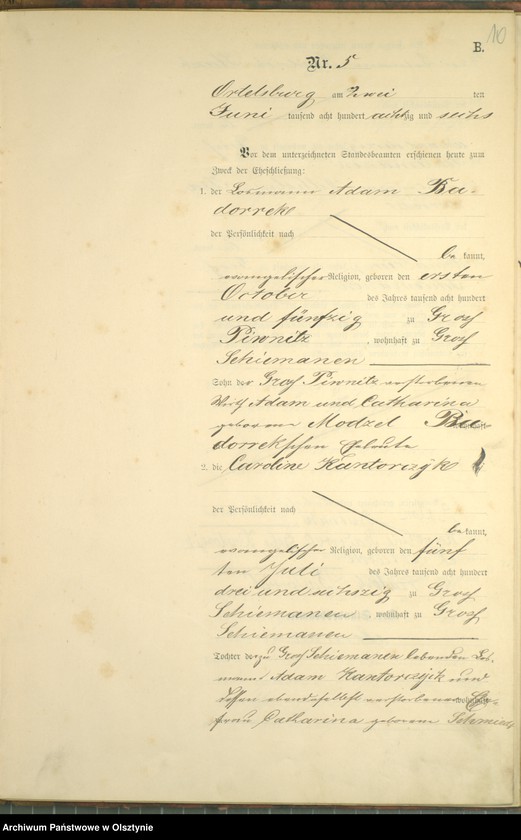 10
B.
Nr. 5
Ortelsburg am zwei ten
Juni tausend acht hundert achtzig und sechs
Vor dem unterzeichneten Standesbeamten erschienen heute zum
Zweck der Eheschließung:
1. der Losmann Adam Bu-
dorrek
der Persönlichkeit nach
be kannt,
evangelischer Religion, geboren den ersten
October des Jahres tausend acht hundert
und fünfzig zu Groß
Piwnitz, wohnhaft zu Groß
Schiemanen
Sohn der Groß Piwnitz verstorbenen
Wirth Adam und Catharina
geborene Modzel Bu wohnhaft
dorrekschen Eheleute
2. die Caroline Kantorczyk
der Persönlichkeit nach
be kannt,
evangelischer Religion, geboren den fünf
ten Juli des Jahres tausend acht hundert
drei und sechszig zu Groß
Schiemanen, wohnhaft zu Groß
Schiemanen
Tochter der zu Groß Schiemanen lebenden Los-
manns Adam Kantorczyk und
dessen ebendaselbst verstorbenen wohnhaft Ehe-
frau Catharina geborene
Archiwum Państwowe w Olsztynie